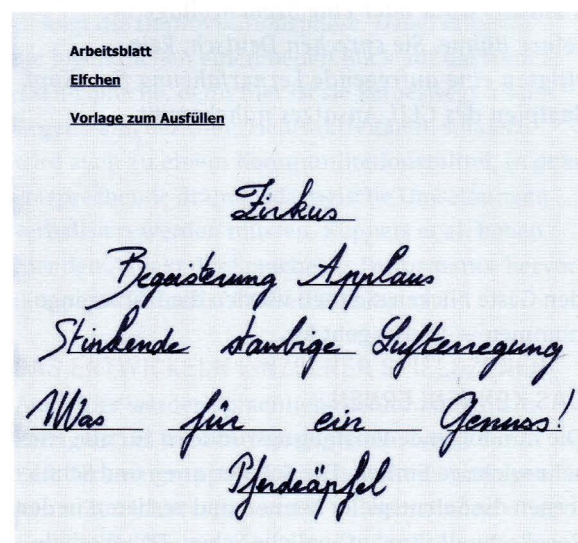 Arbeitsblatt
Elfchen
Vorlage zum Ausfüllen
Zirkus
Begeisterung Applaus
Stinkende staubige Lufterregung
Was für ein Genuss!
Pferdeäpfel